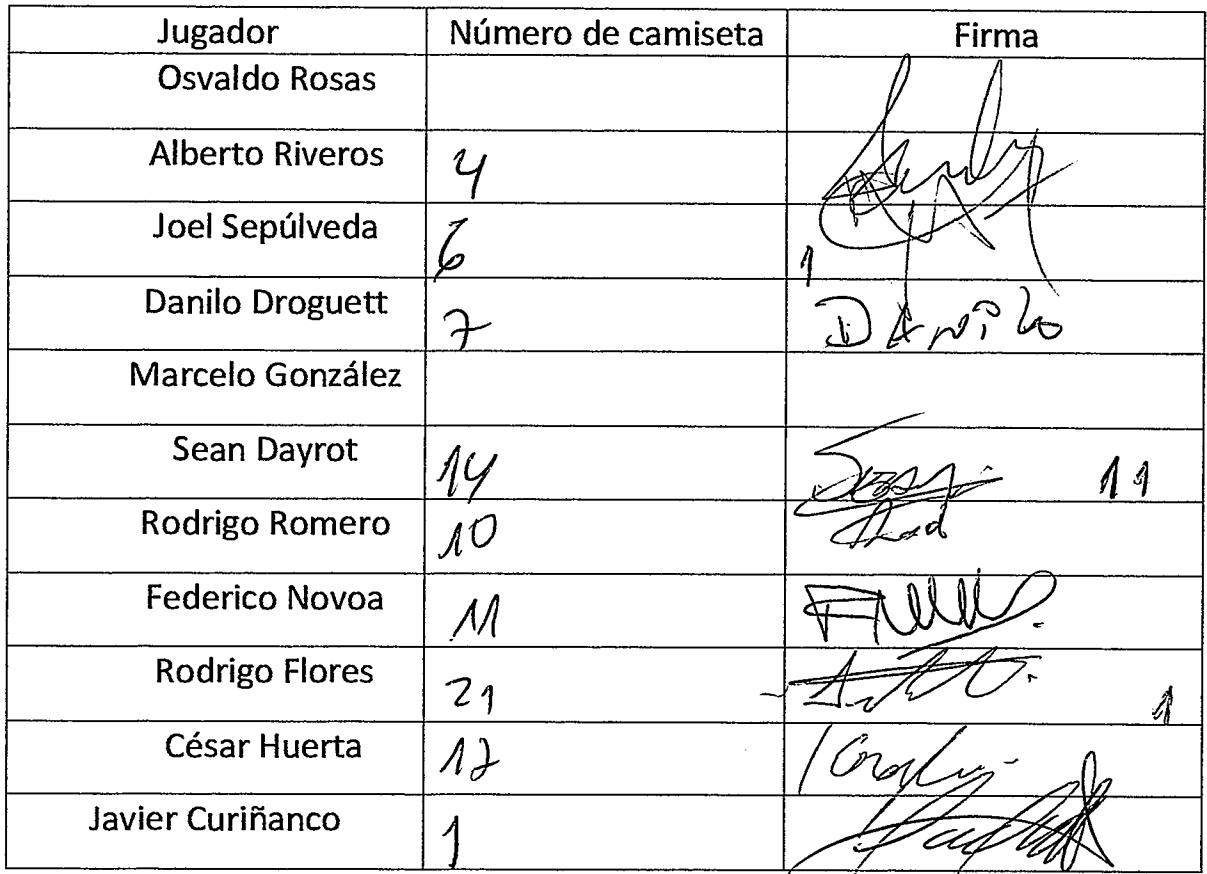 Jugador Número de camiseta Firma
Osvaldo Rosas
Alberto Riveros 4
Joel Sepúlveda 6 1
Danilo Droguett 7 DANilo
Marcelo González
Sean Dayrot 14 11
Rodrigo Romero 10
Federico Novoa 11
Rodrigo Flores 21 1
César Huerta 17
Javier Curiñanco 1